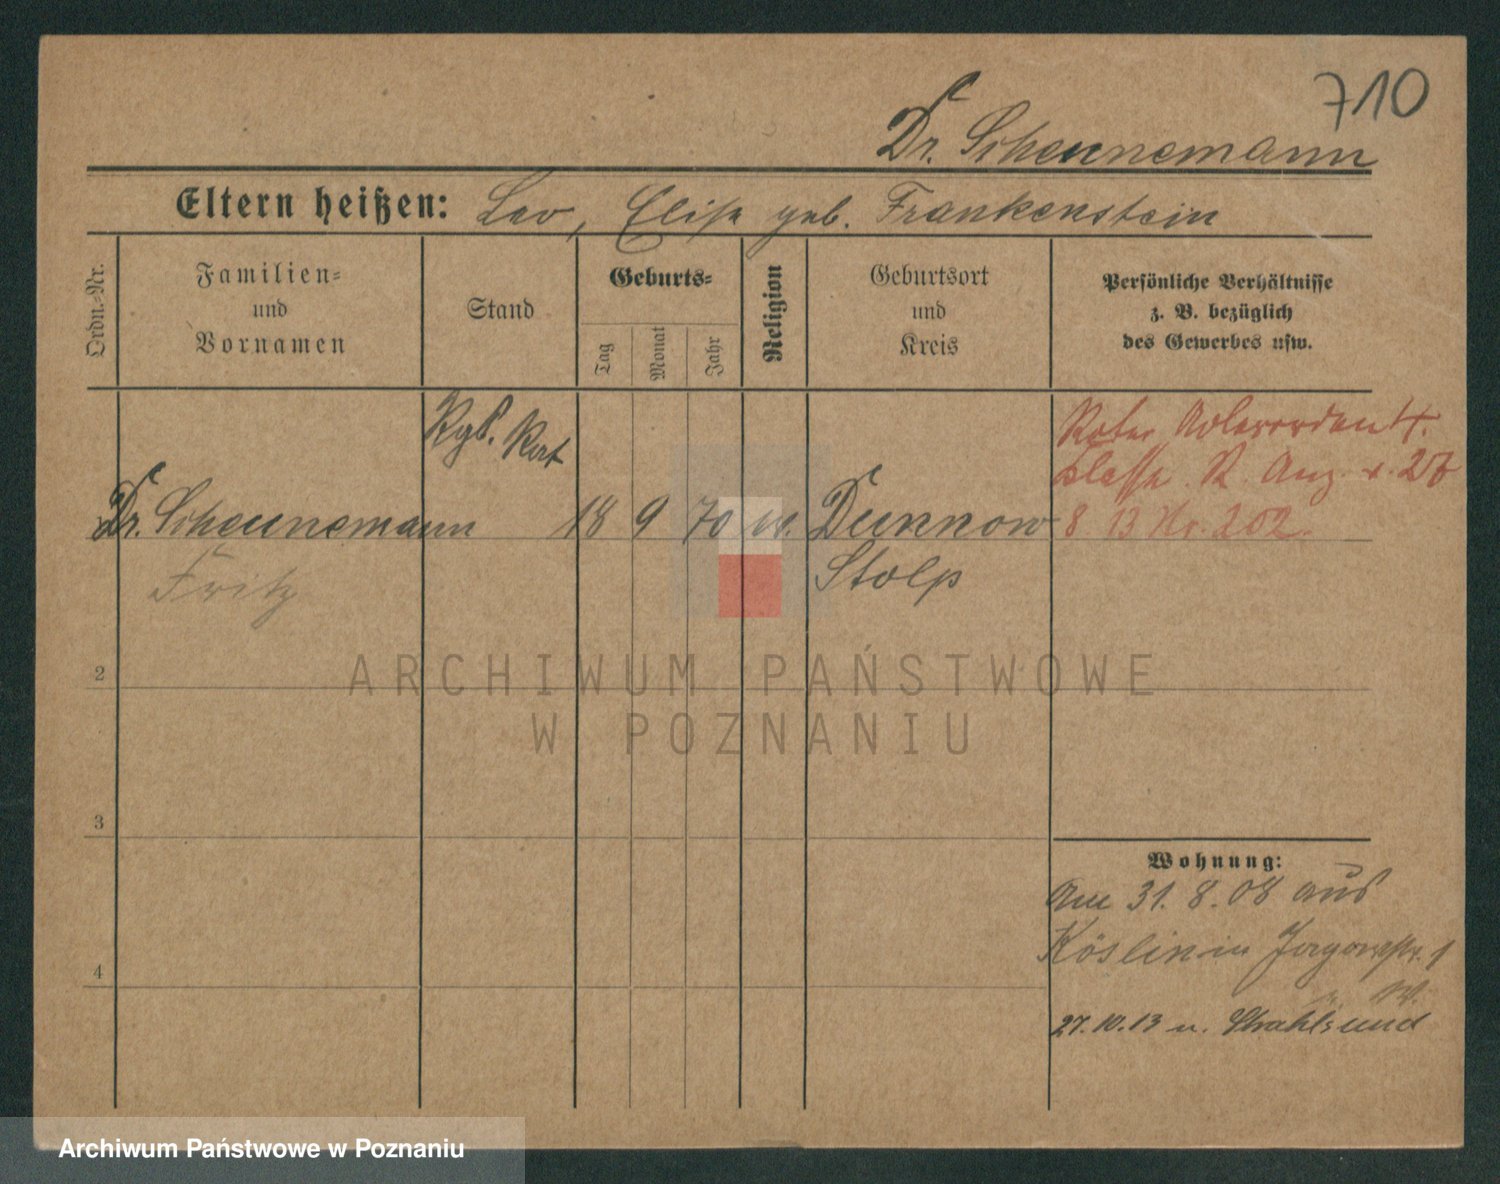 710
Dr. Scheunemann
Eltern heißen: Leo, Elise geb. Frankenstein
Ordn.-Nr.
Familien-
und
Vornamen
Stand
Geburts-
Tag
Monat
Jahr
Religion
Geburtsort
und
Kreis
Persönliche Verhältnisse
z. B. bezüglich
des Gewerbes usw.
Rgs. Rat
Roter Adlerorden 4.
Klasse R. Anz. v. 27
8 13 Nr. 202.
Dr. Scheunemann 18 9 70 ev. Dünnow
Fritz
Stolp
2
3
4
Wohnung:
Am 31. 8. 08 aus
Köslin in Jagowstr. 1
27.10.13 n. Stralsund
ARCHIWUM PAŃSTWOWE
W POZNANIU
Archiwum Państwowe w Poznaniu